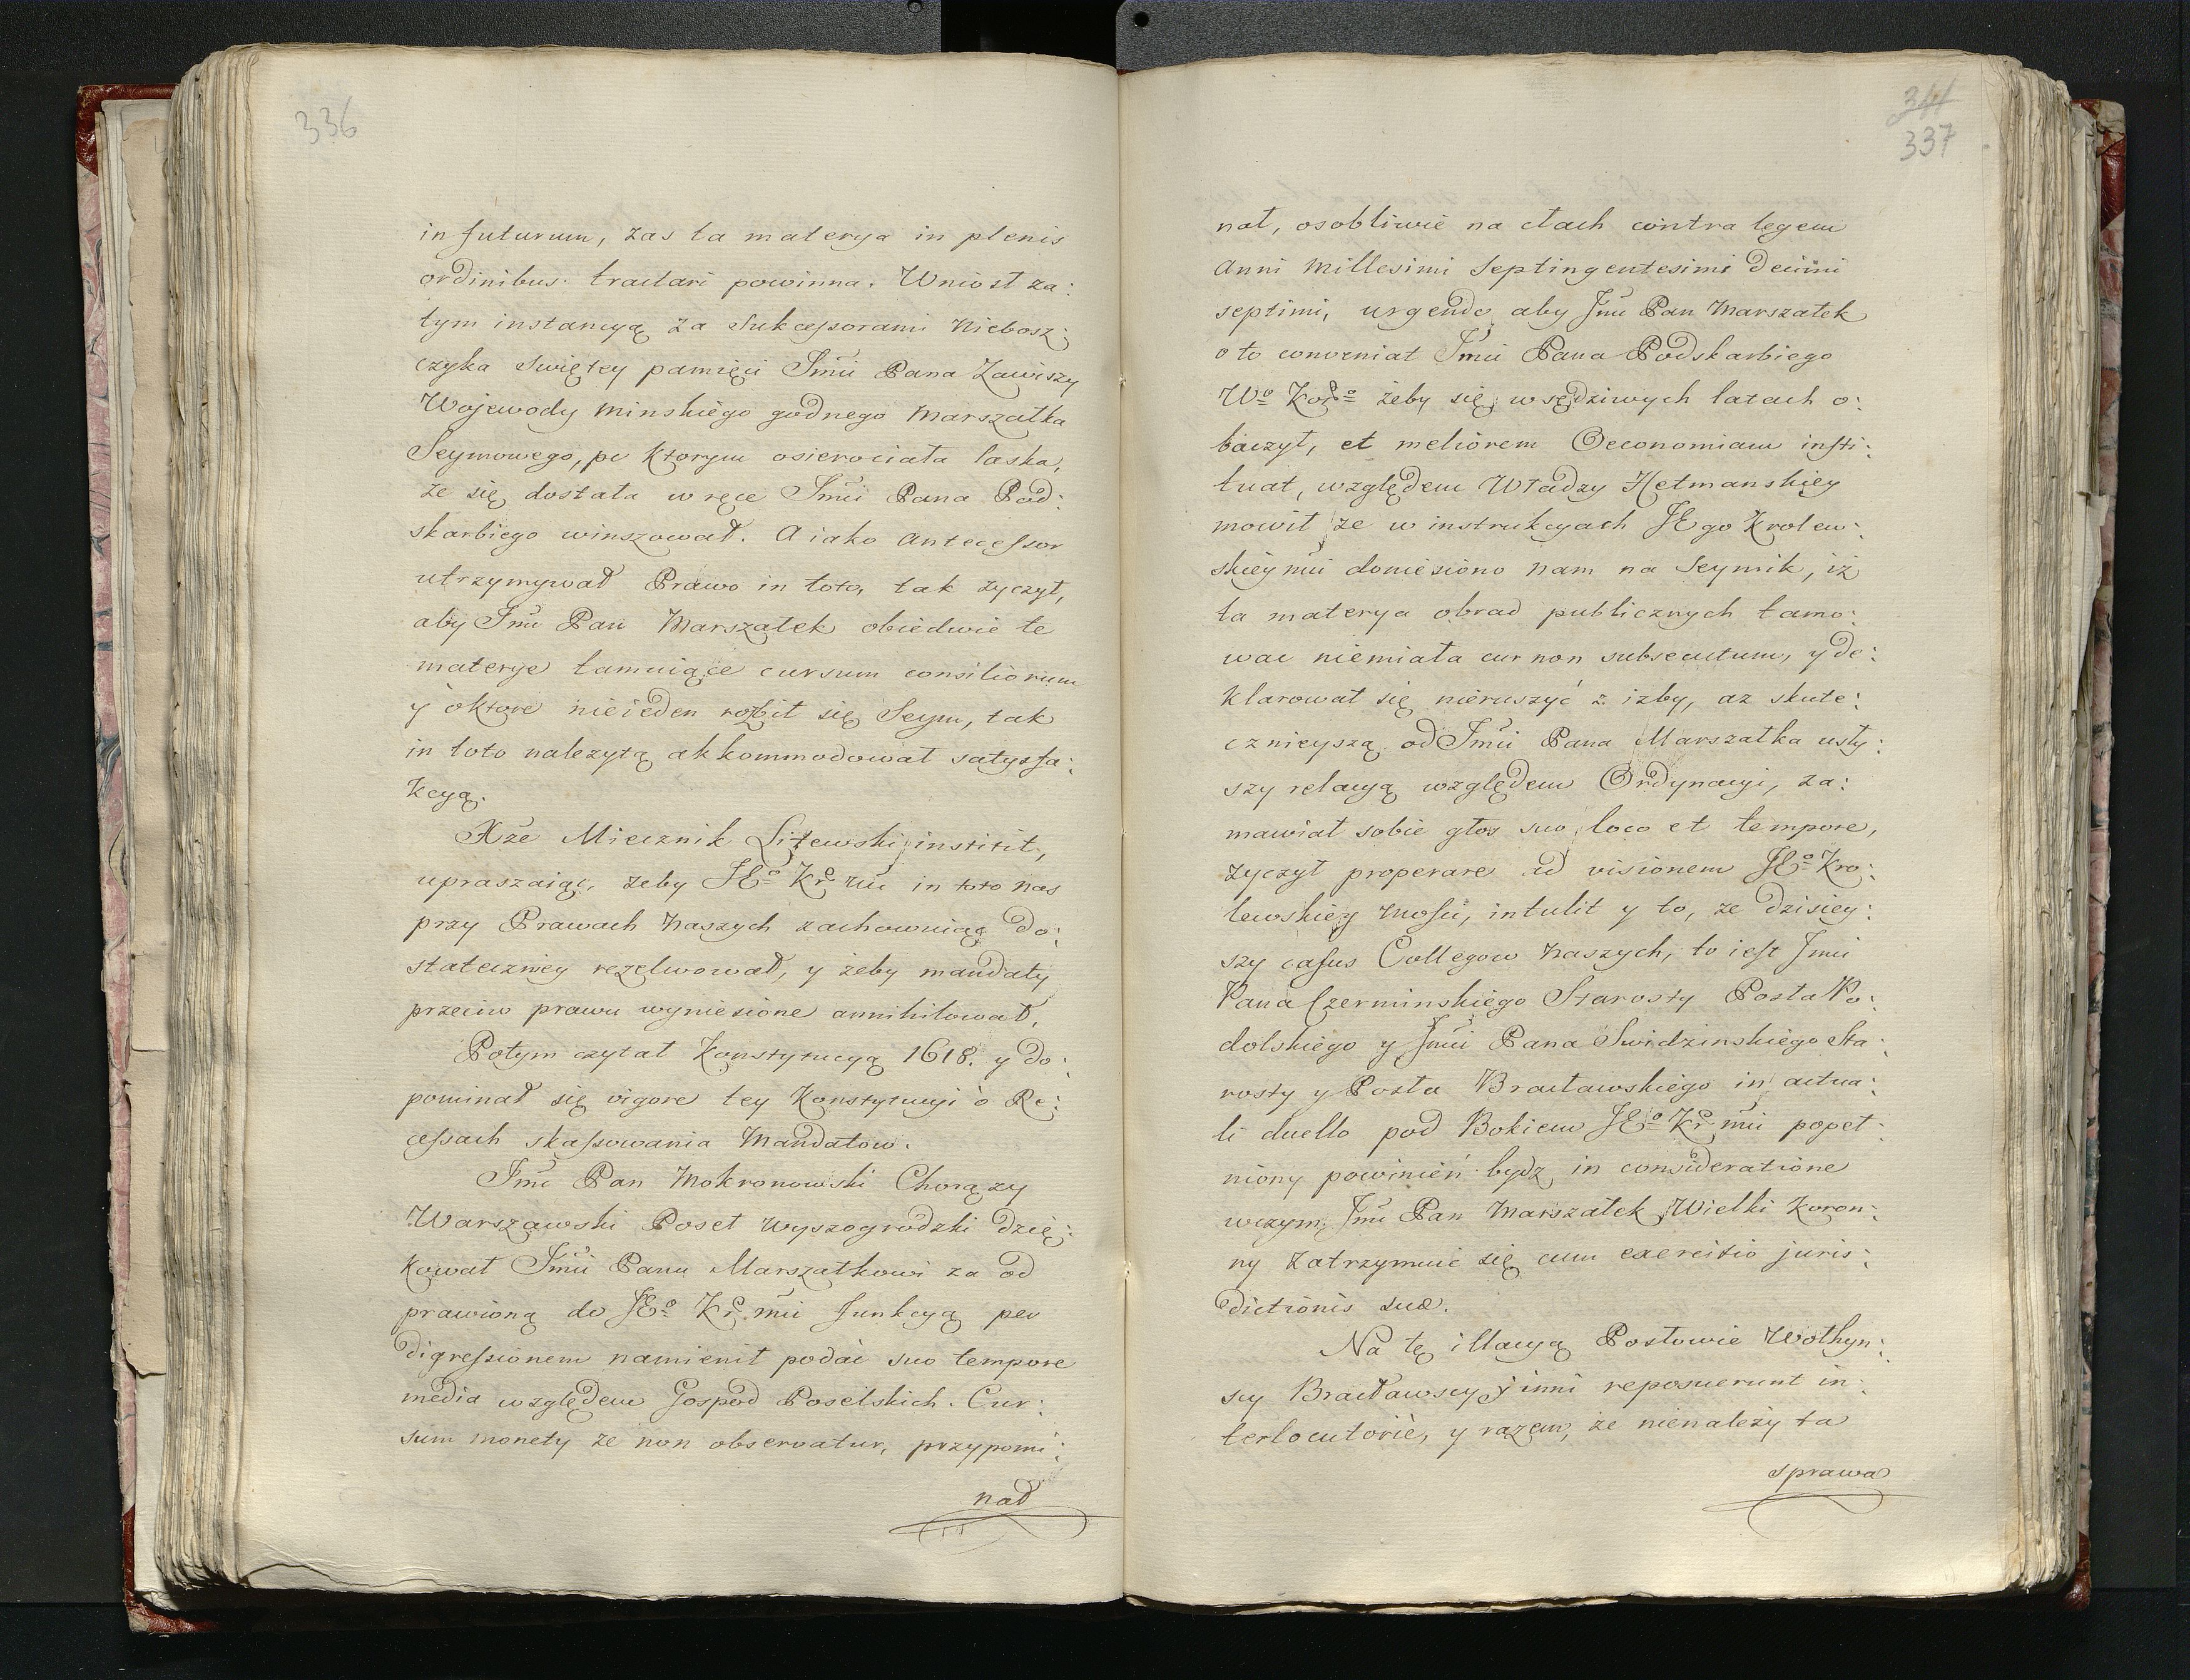 336
in futurum, zas ta materya in plenis
ordinibus tractari powinna. Wniosł za:
tym instancyą za Sukcessorami Niebosz:
czyka Swiętey pamięci Jmći Pana Zawiszy
Wojewody Minskiego godnego Marszałka
Seymowego, po ktorym osierociała laska,
że się dostała w ręce Jmći Pana Pod:
skarbiego winszował. A iako Antecessor
utrzymywał Prawo in toto, tak życzył,
aby Jmć Pan Marszałek obiedwie te
materye tamuiące cursum consiliorum
y o ktore nieieden rozbił się Seym, tak
in toto należytą akkommodował satysfa:
kcyą.
Xże Miecznik Litewski institit,
upraszaiąc, żeby JEº Kr. mć in toto nas
przy Prawach Naszych zachowuiąc do:
stateczniey rezelwował, y żeby mandaty
przeciw prawu wyniesione annihilował.
Potym czytał Konstytucyą 1618. y do:
pominał się vigore tey Konstytucyi o Re:
cessach skassowania Mandatow.
Jmć Pan Mokronowski Chorąży
Warszawski Poseł Wyszogrodzki dzię:
kował Jmći Panu Marszałkowi za od
prawioną do JEº Kr. mći funkcyą per
digressionem namienił podać suo tempore
media względem Gospod Poselskich. Cur:
sum monety że non observatur, przypomi:
nał
341
337
nał, osobliwie na cłach contra legem
Anni Millesimi Septingentesimi decimi
septimi, urgendo, aby Jmć Pan Marszałek
o to conveniat Jmći Pana Podskarbiego
Wº Korº żeby się w sędziwych latach o:
baczył, et meliorem Oeconomiam insti:
tuat, względem Władzy Hetmanskiey
mowił że w instrukcyach JEgo Krolew:
skiey mći doniesiono nam na Seymik, iż
ta materya obrad publicznych tamo:
wac niemiała cur non subsecutum, y de:
klarował się nieruszyć z izby, az skute:
cznieyszą od Jmći Pana Marszałka usły:
szy relacyą względem Ordynacyi, za:
mawiał sobie głos suo loco et tempore,
życzył properare ad visionem JEº Kro:
lewskiey Mości, intulit y to, że dzisiey:
szy casus Collegow Naszych, to iest Jmći
Pana Czerminskiego Starosty Posła Po:
dolskiego y Jmći Pana Swidzinskiego Sta:
rosty y Posła Bracławskiego in actua:
li duello pod Bokiem JEº Kr. mći popeł:
niony powinień bydz in consideratione
wczym Jmć Pan Marszałek Wielki Koron:
ny zatrzymuie się cum exercitio juris:
dictionis suæ.
Na tę illacyą Posłowie Wołhyn:
scy Bracławscy y inni reposuerunt in:
terlocutoriè, y razem, że nienależy ta
sprawa